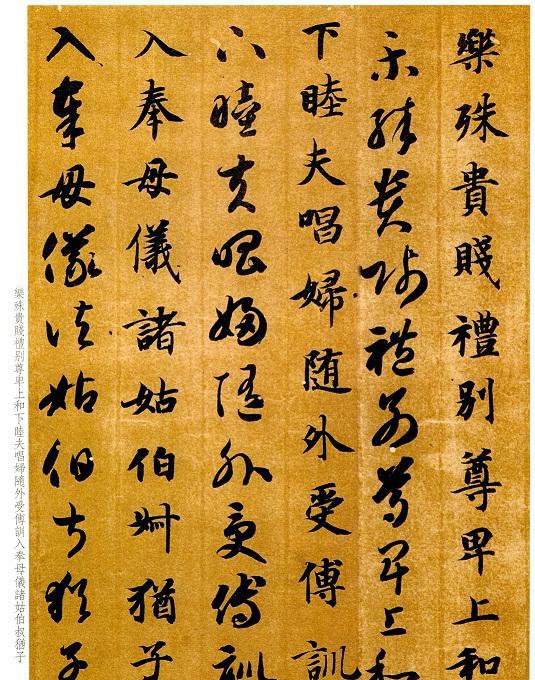 樂殊貴賤禮別尊卑上和
樂殊貴賤禮別尊卑上和
下睦夫唱婦随外受傅訓
下睦夫唱婦随外受傅訓
入奉母儀諸姑伯叔猶子
入奉母儀諸姑伯叔猶子
樂殊貴賤禮别尊卑上和下睦夫唱婦隨外受傅訓入奉母儀諸姑伯叔猶子